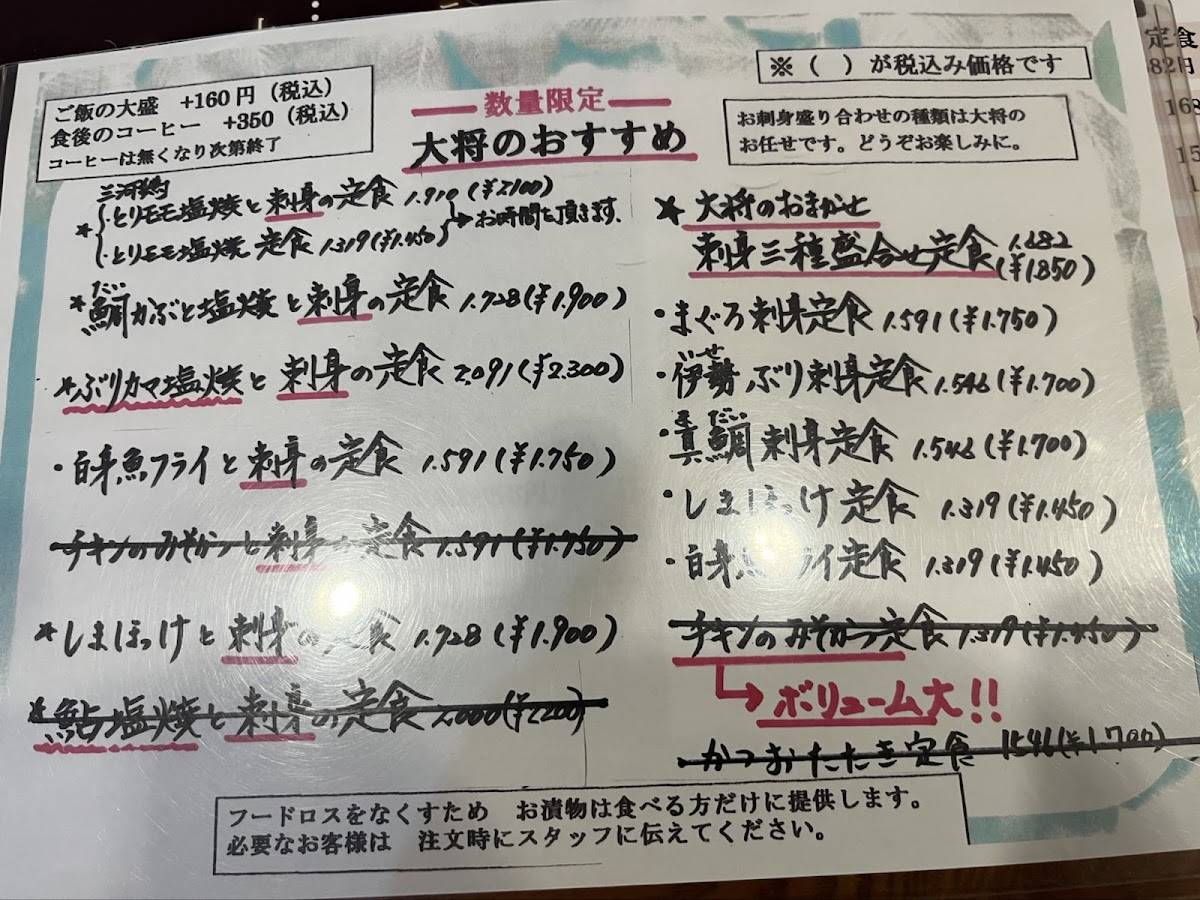 ご飯の大盛 +160円（税込）
食後のコーヒー +350（税込）
コーヒーは無くなり次第終了
数量限定
大将のおすすめ
※（ ）が税込み価格です
お刺身盛り合わせの種類は大将の
お任せです。どうぞお楽しみに。
三河鶏
★・とりモモ塩焼と刺身の定食 1.910(¥2100)
・とりモモ塩焼 定食 1.319(¥1.450)
→お時間を頂きます.
だい
★鯛かぶと塩焼と刺身の定食 1.728(¥1.900)
★ぶりカマ塩焼と刺身の定食 2.091(¥2.300)
・白身魚フライと刺身の定食 1.591(¥1.750)
チキンのみそかつと刺身の定食 1.591(¥1.750)
★しまほっけと刺身の定食 1.728(¥1.900)
★鮎塩焼と刺身の定食 2.000(¥2200)
★大将のおまかせ
刺身三種盛合せ定食 1.682
(¥1850)
・まぐろ刺身定食 1.591(¥1.750)
いせ
・伊勢ぶり刺身定食 1.546(¥1.700)
まだい
・真鯛刺身定食 1.546(¥1.700)
・しまほっけ定食 1.319(¥1.450)
・白身魚フライ定食 1.319(¥1.450)
チキンのみそかつ定食 1.319(¥1.450)
→ボリューム大!!
・かつおたたき定食 1546(¥1.700)
フードロスをなくすため お漬物は食べる方だけに提供します。
必要なお客様は 注文時にスタッフに伝えてください。
定食
82円
168
15